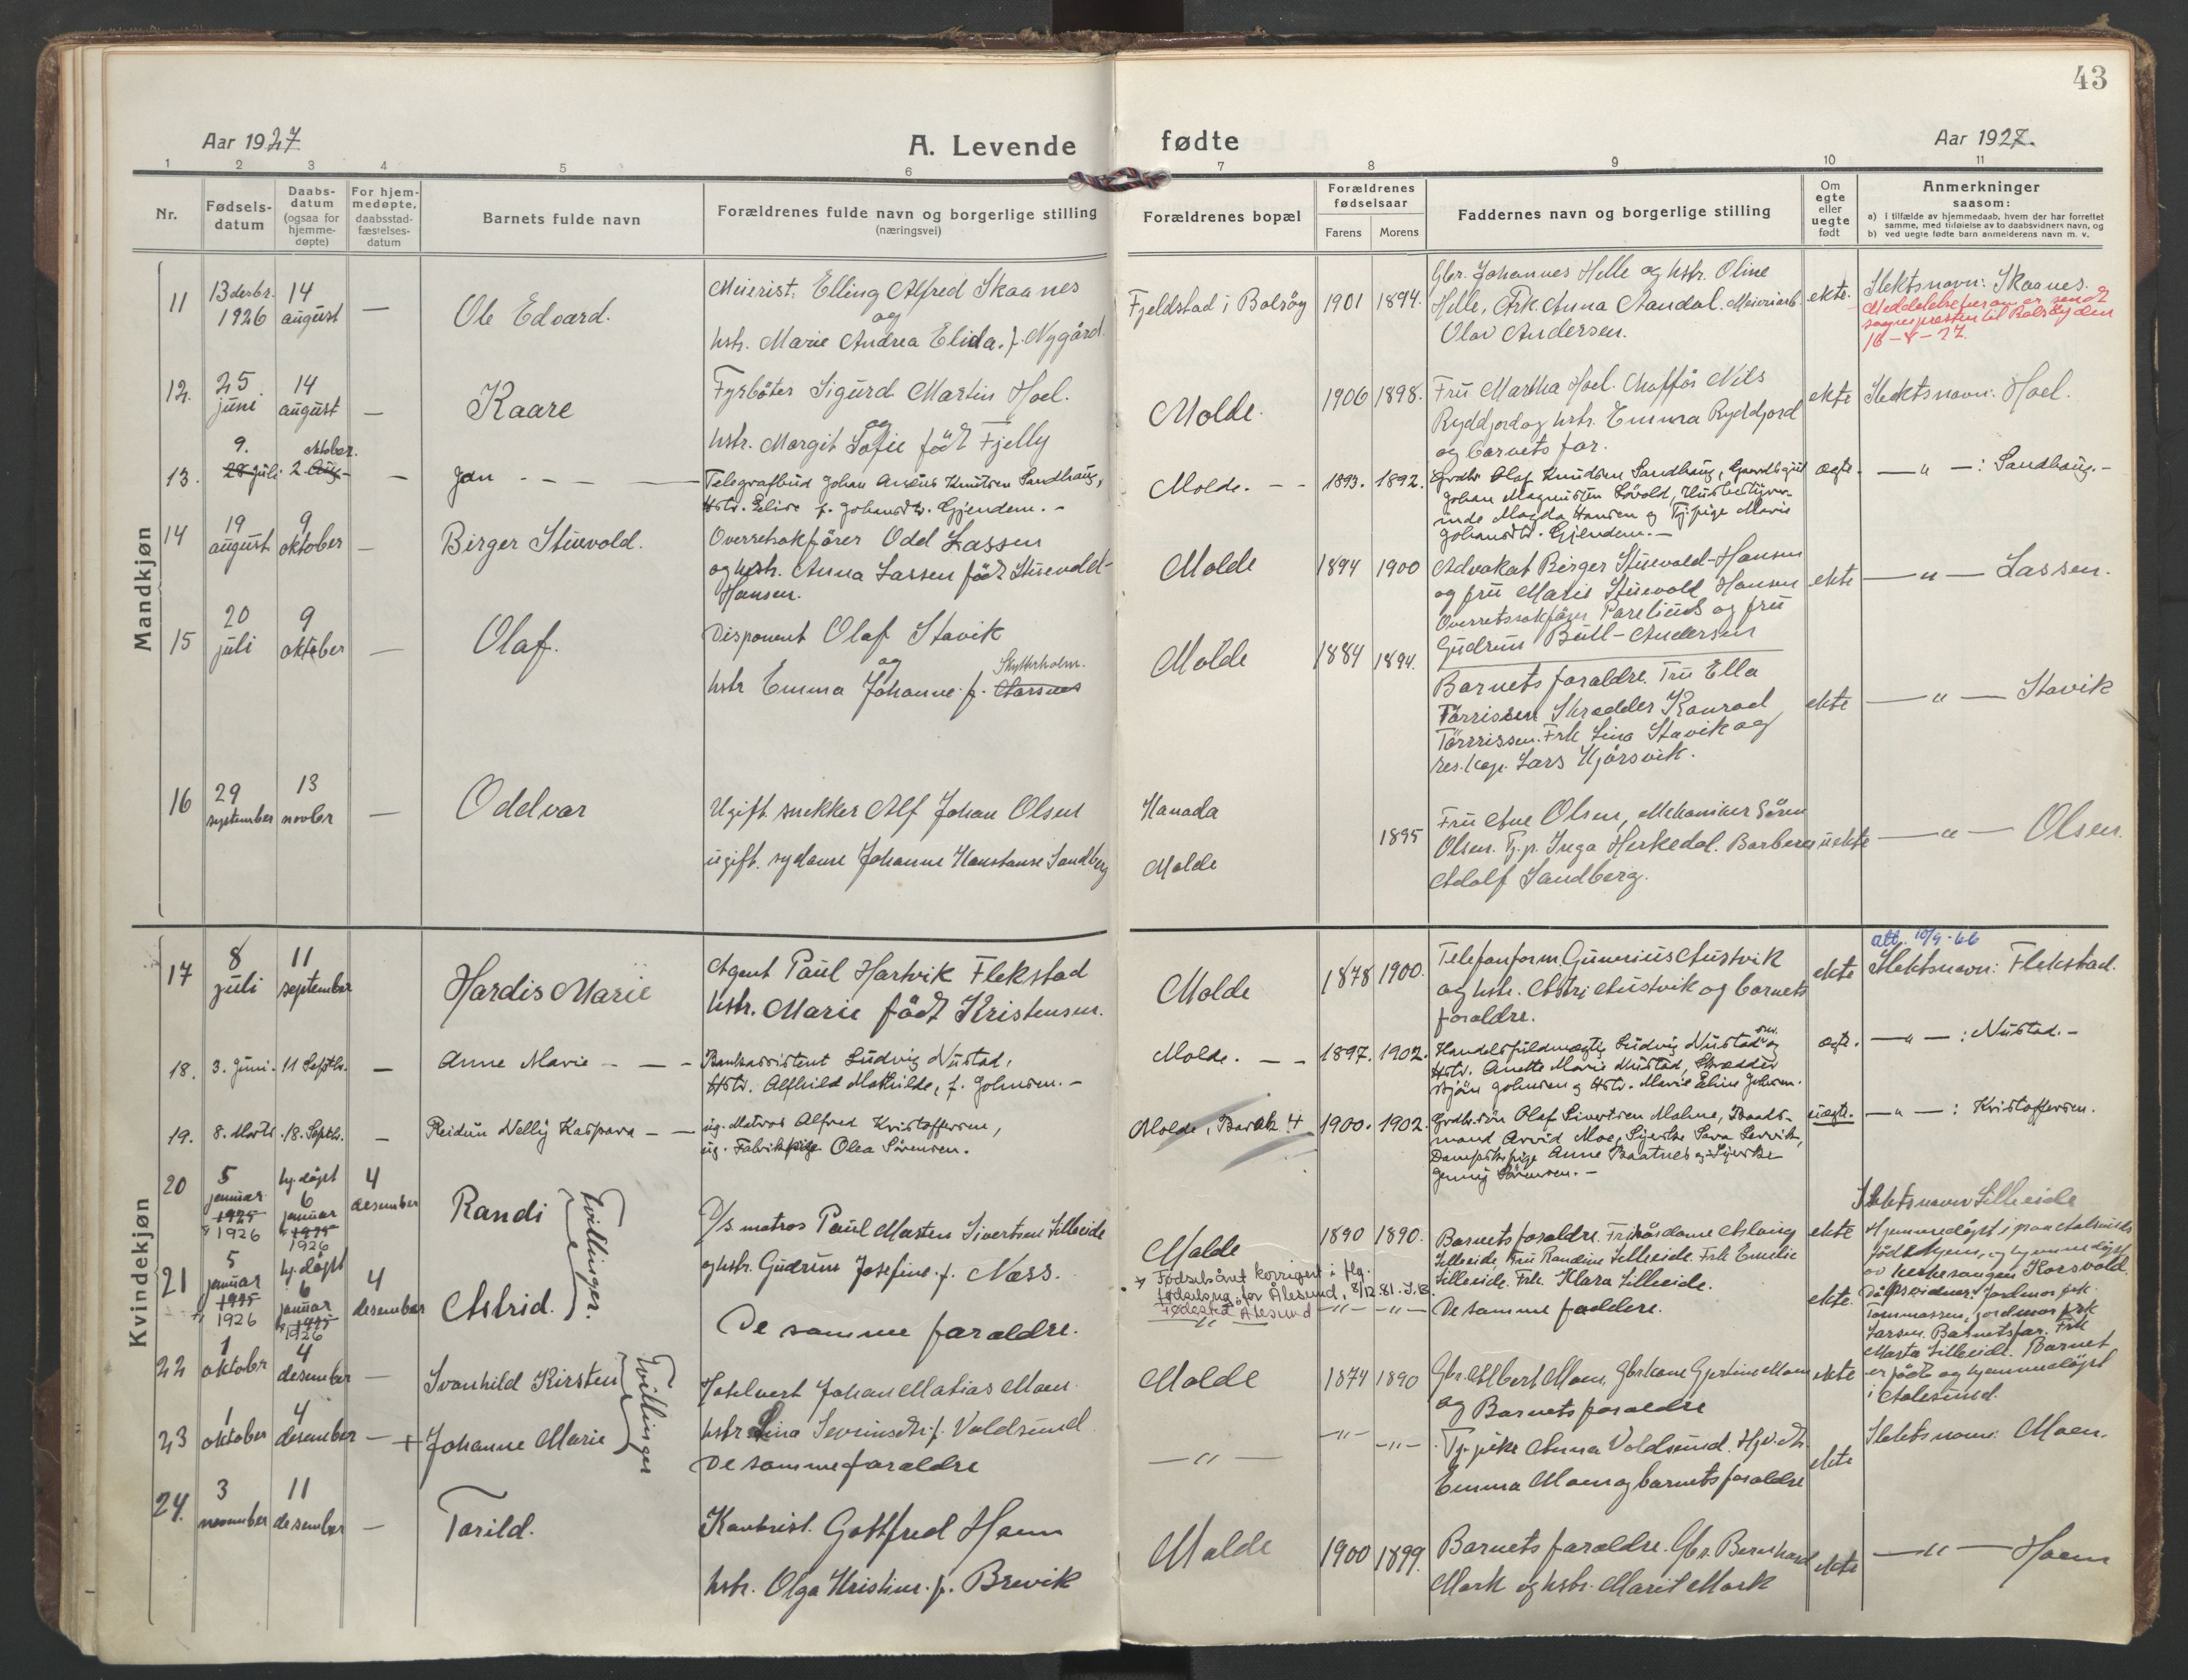 43
Aar 1927
A. Levende
fødte
Aar 1927.
1 2 3 4 5 6 7 8 9 10 11
Nr.
Fødsels-
datum
Daabs-
datum
(ogsaa for
hjemme-
døpte)
For hjem-
medøpte,
daabsstad-
fæstelses-
datum
Barnets fulde navn
Forældrenes fulde navn og borgerlige stilling
(næringsvei)
Forældrenes bopæl
Forældrenes
fødselsaar
Farens Morens
Faddernes navn og borgerlige stilling
Om
egte
eller
uegte
født
Anmerkninger
saasom:
a) i tilfælde av hjemmedaab, hvem der har forrettet
samme, med tilføielse av to daabsvidners navn, og
b) ved uegte fødte barn anmelderens navn m. v.
Mandkjøn
11
13 desbr.
1926
14
august
—
Ole Edvard.
Meierist. Elling Alfred Skaanes
og
hstr. Marie Andrea Elida. f. Nygård.
Fjeldstad i Bolsöy
1901 1894.
Gbr. Johannes Helle og hstr. Oline
Helle, Frk. Anna Aandal. Meieriarb.
Olav Andersen.
ekte.
Slektsnavn: Skaanes.
Meddelelse herom er sendt
sognepresten til Bolsöy den
16-8-27.
12.
25
juni
14
august
—
Kaare
Fyrböter Sigurd Martin Hoel.
og
hstr. Margit Sofie födt Fjelly
Molde.
1906 1898.
Fru Martha Hoel. Chafför Nils
Ryddjord og hstr. Emma Ryddjord
og barnets far.
ekte
Slektsnavn: Hoel.
13.
9.
28 juli
oktober.
2. Aug
—
Jan
Telegrafbud Johan Anæus Knutsen Sandhaug,
Hstr. Elise f. Johansdtr. Gjendem.
Molde.
1893. 1892.
Grdbr Olaf Knudsen Sandhaug, Gaardbrgut
Johan Magnussen Lövold, Husbestyrer-
inde Magda Hansen og Tj.pige Marie
Johansdtr. Gjendem.
ægte.
— " —: Sandhaug.
14
19
august
9
oktober
—
Birger Stuevold.
Overretssakförer Odd Lassen
og hstr. Anna Lassen födt Stuevold-
Hansen.
Molde
1894 1900
Advokat Birger Stuevold-Hansen
og fru Marie Stuevold Hansen
Overretssakförer Parelius og fru
Gudrun Bull-Andersen
ekte
— " — Lassen.
15
20
juli
9
oktober
—
Olaf.
Disponent Olaf Stavik
og
Skytterholm.
hstr Emma Johanne. f. Clarsnes
Molde
1884 1894.
Barnets foraldre. Fru Ella
Törrissen Skredder Konrad
Törrissen. Frk Lina Stavik og
res. kap. Lars Kjörsvik.
ekte
— " — Stavik
16
29
september
13
novbr
—
Oddvar
Ugift. snekker Alf Johan Olsen
ugift. sydame Johanne Konstanse Sandberg
Kanada
Molde
1895
Fru Ane Olsen, Mekaniker Sören
Olsen. Tj. p. Inga Herkedal. Barberer
Adolf Sandberg.
uekte
— " — Olsen.
Kvindekjøn
17
8
juli
11
september
Hardis Marie
Agent Paul Hartvik Flekstad
hstr. Marie födt Kristensen.
Molde
1878 1900.
Telefonform. Gunerius Austvik
og hstr. Astri Austvik og barnets
foraldre.
ekte
att. 10/9-66
Slektsnavn: Flekstad.
18.
3. Juni.
11 Septbr.
—
Anne Marie
Bankassistent Ludvig Nustad,
Hstr. Alfhild Mathilde, f. Johnsen.
Molde.
1897. 1902.
Handelsfuldmægtig Ludvig Nustad sen. og
Hstr. Anette Marie Nustad, Skrædder
Björn Johnsen og Hstr. Marie Eline Johnsen.
ægte.
— " —: Nustad.
19.
8. Marts
18. Septbr.
—
Reidun Nelly Kaspara
ug. Matros Alfred Kristoffersen,
ug. Fabrikpige Olea Sörensen.
Molde, Barak 4
1900. 1902.
Grdbr.sön Olaf Sivertsen Malme, Baads-
mand Arvid Moe, Syerske Sara Lervik,
Dampskibspige Anne Baatnes og Syerske
Jenny Sörensen.
uægte.
— " —: Kristoffersen.
20
5
januar
1925
1926
hj. döpt
6
januar
1925
1926
4
desember
Randi
Tvillinger
D/s matros Paul Morten Sivertsen Silleeide
og hstr. Gudrun Josefine. f. Næss.
Molde
1890 1890.
Barnets foraldre. Frisördame Aslaug
Silleeide, Fru Randine Silleeide. Frk Emilie
Silleeide. Frk. Klara Silleeide.
ekte
Slektsnavn Silleeide
Hjemmedöpt i paa Aalesunds
födehjem, og hjemmedöpt
av kirkesanger Korsvold.
Dåpsvidner: Jordmor frk.
Tommassen, jordmor frk
Larsen. Barnets far. Frk
Marta Silleeide. Barnet
er födt og hjemmedöpt
i Aalesund.
21
5
januar
1925
1926
hj. döpt
6
januar
1925
1926
4
desember
Astrid.
De samme foraldre.
Fødselsåret korrigert i flg.
fødselsreg. for Ålesund, 8/12.81. I.B.
Fødested Ålesund
—"— —"—
De samme faddere.
ekte
22
1
oktobr
4
desember
—
Svanhild Kirsten
Tvillinger
Hotelvert Johan Matias Moen
hstr Lina Sevrinsdtr. f. Voldsund
Molde
1874 1890
Gbr. Albert Moen, Gbrkone Gjertine Moen
og Barnets foraldre
ekte
23
1
oktober
4
desember
—
+ Johanne Marie
De samme foraldre
— " —
—"— —"—
Tj. pike Anna Voldsund. Hjv. dtr.
Emma Moen og barnets foraldre
ekte
Slektsnavn: Moen.
24.
3
november
11
desember
—
Torild.
Kontorist. Gottfred Hoem
hstr. Olga Kristine. f. Brevik
Molde
1900 1899.
Barnets foraldre. Gbr. Bernhard
Mork og hstr. Marit Mork
ekte
— " — Hoem